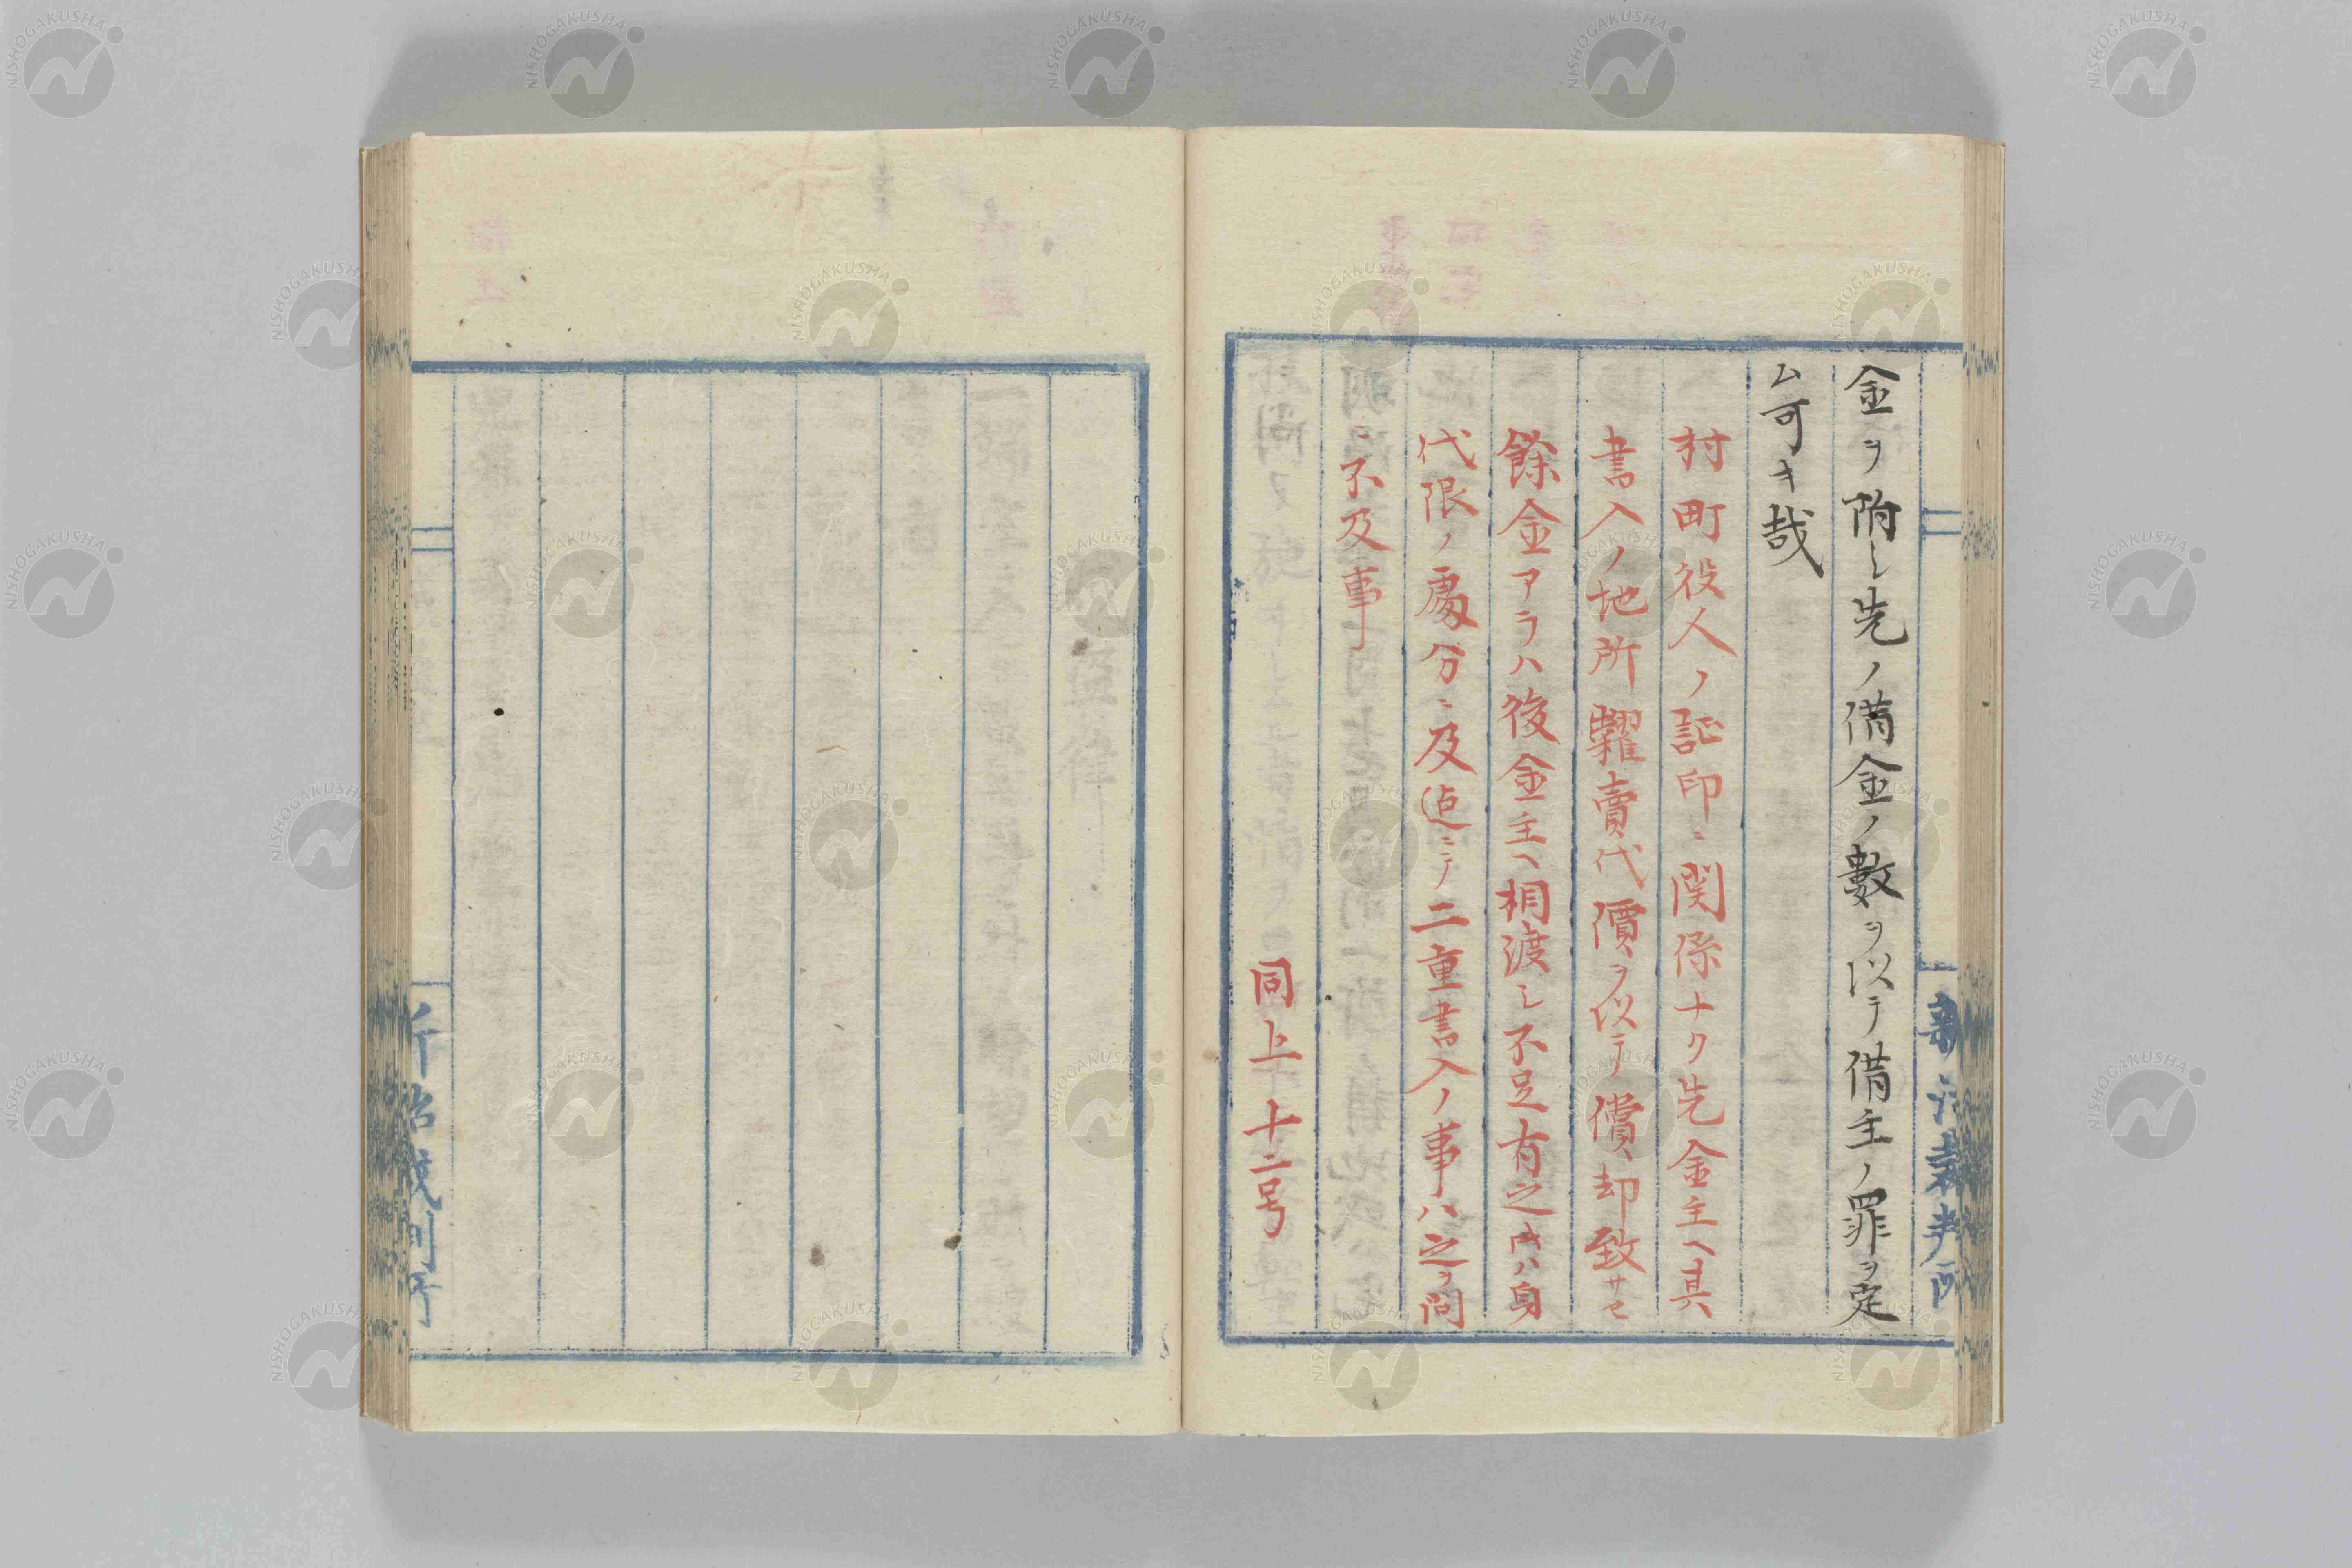 金ヲ附シ先ノ備金ノ數ヲ以テ備主ノ罪ヲ定
ム可キ哉
村町役人ノ証印ニ関係ナク先金主ヘ其
書入ノ地所糶賣代價ヲ以テ償却致サセ
餘金アラハ後金主ヘ相渡シ不足有之時ハ身
代限ノ處分ニ及迠ニテ二重書入ノ事ハ之ヲ問
ニ不及事
同上十二号
新治裁判所
新治裁判所